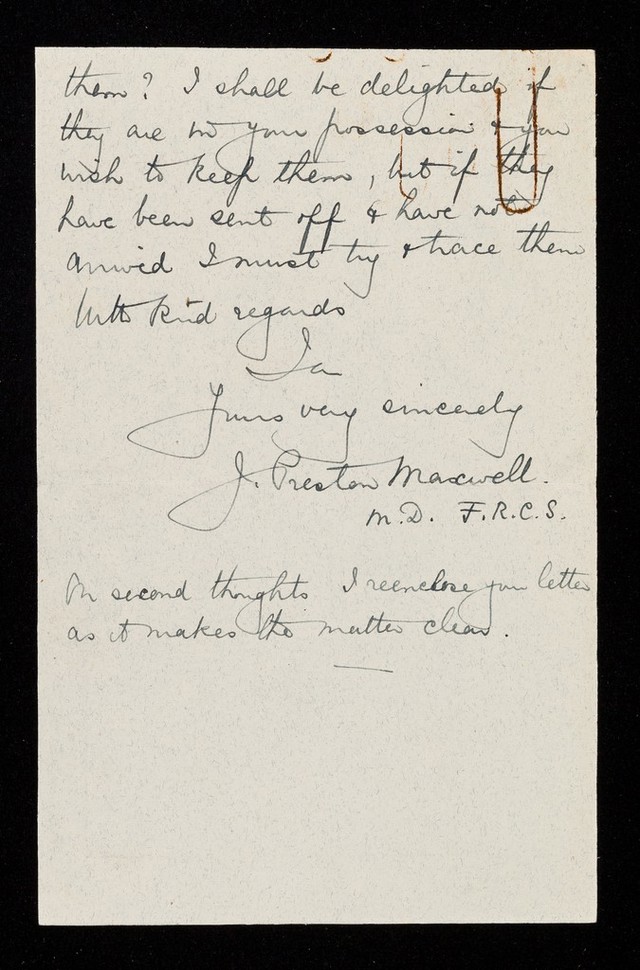 them? I shall be delighted if
they are in your possession & you
wish to keep them, but if they
have been sent off & have not
arrived I must try & trace them
With kind regards
I am
Yours very sincerely
J. Preston Maxwell.
M.D. F.R.C.S.
On second thoughts I reenclose your letter
as it makes the matter clear.